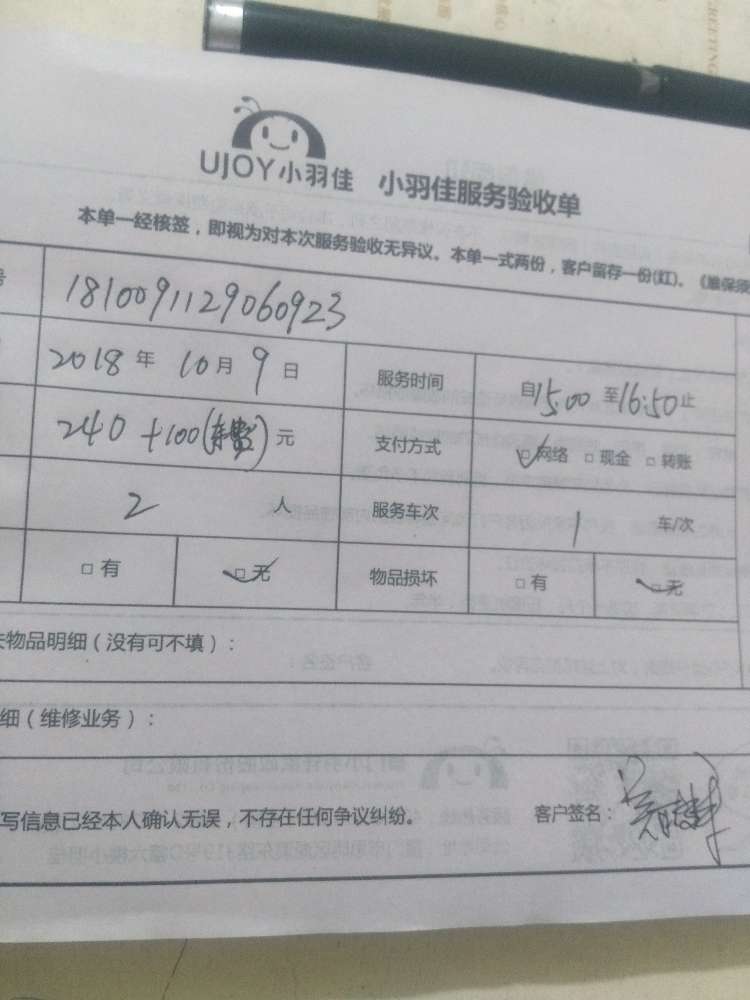 UJOY小羽佳 小羽佳服务验收单
本单一经核签，即视为对本次服务验收无异议。本单一式两份，客户留存一份(红)。《维保须
号 1810091129060923
2018年10月9日 服务时间 自15:00至16:50止
240+100(车费)元 支付方式 ☑网络 □现金 □转账
2人 服务车次 1车/次
□有 ☑无 物品损坏 □有 ☑无
失物品明细（没有可不填）：
细（维修业务）：
写信息已经本人确认无误，不存在任何争议纠纷。 客户签名：